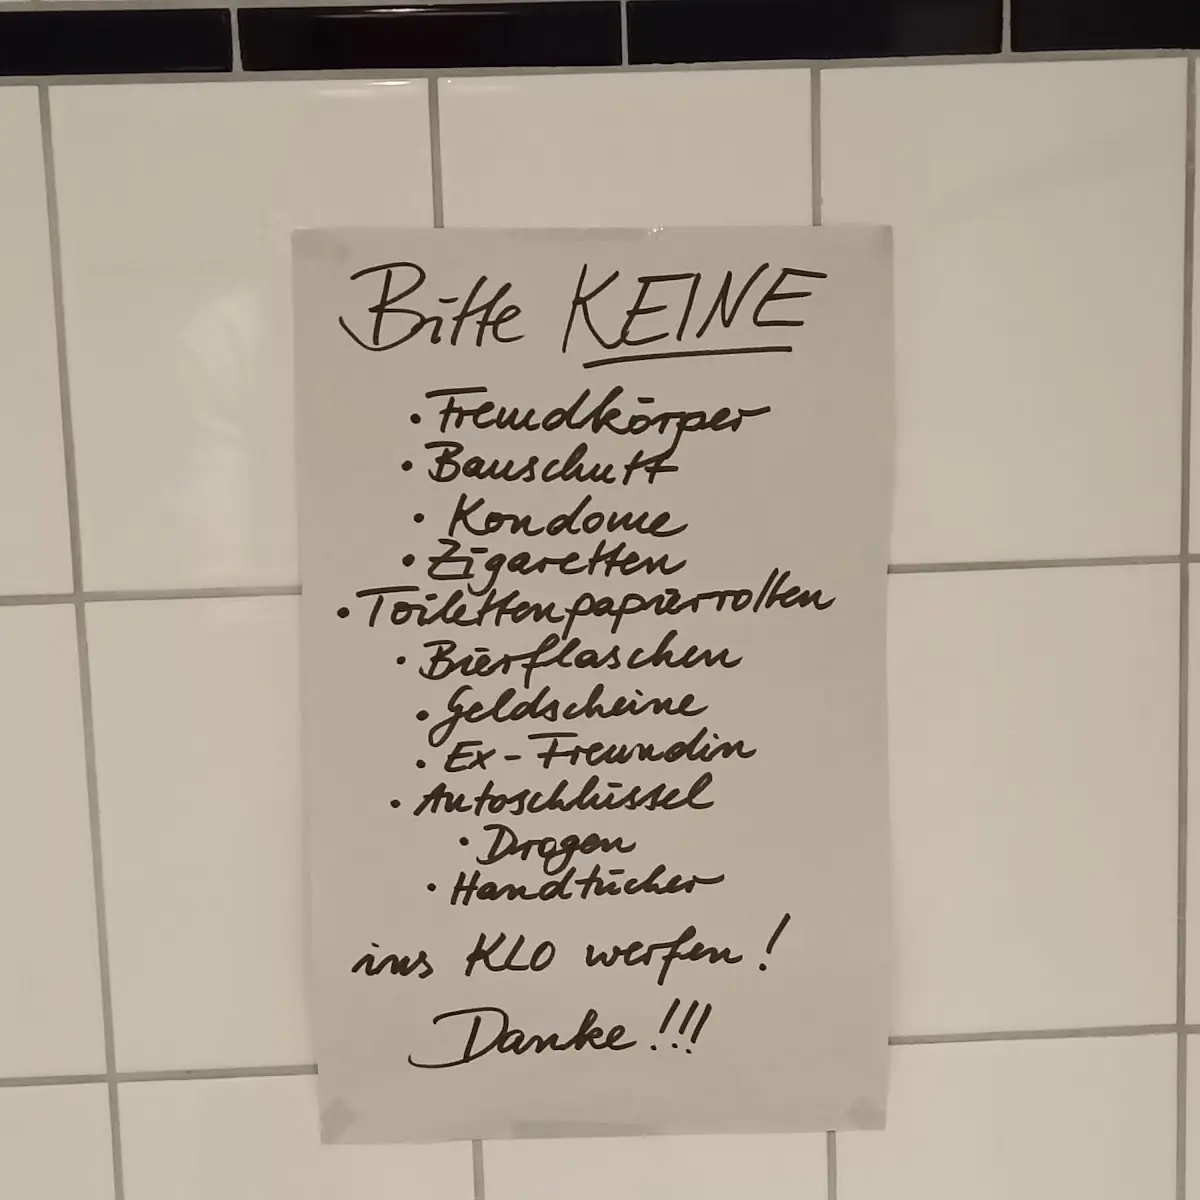 Bitte KEINE
• Fremdkörper
• Bauschutt
• Kondome
• Zigaretten
• Toilettenpapierrollen
• Bierflaschen
• Geldscheine
• Ex-Freundin
• Autoschlüssel
• Drogen
• Handtücher
ins KLO werfen!
Danke!!!